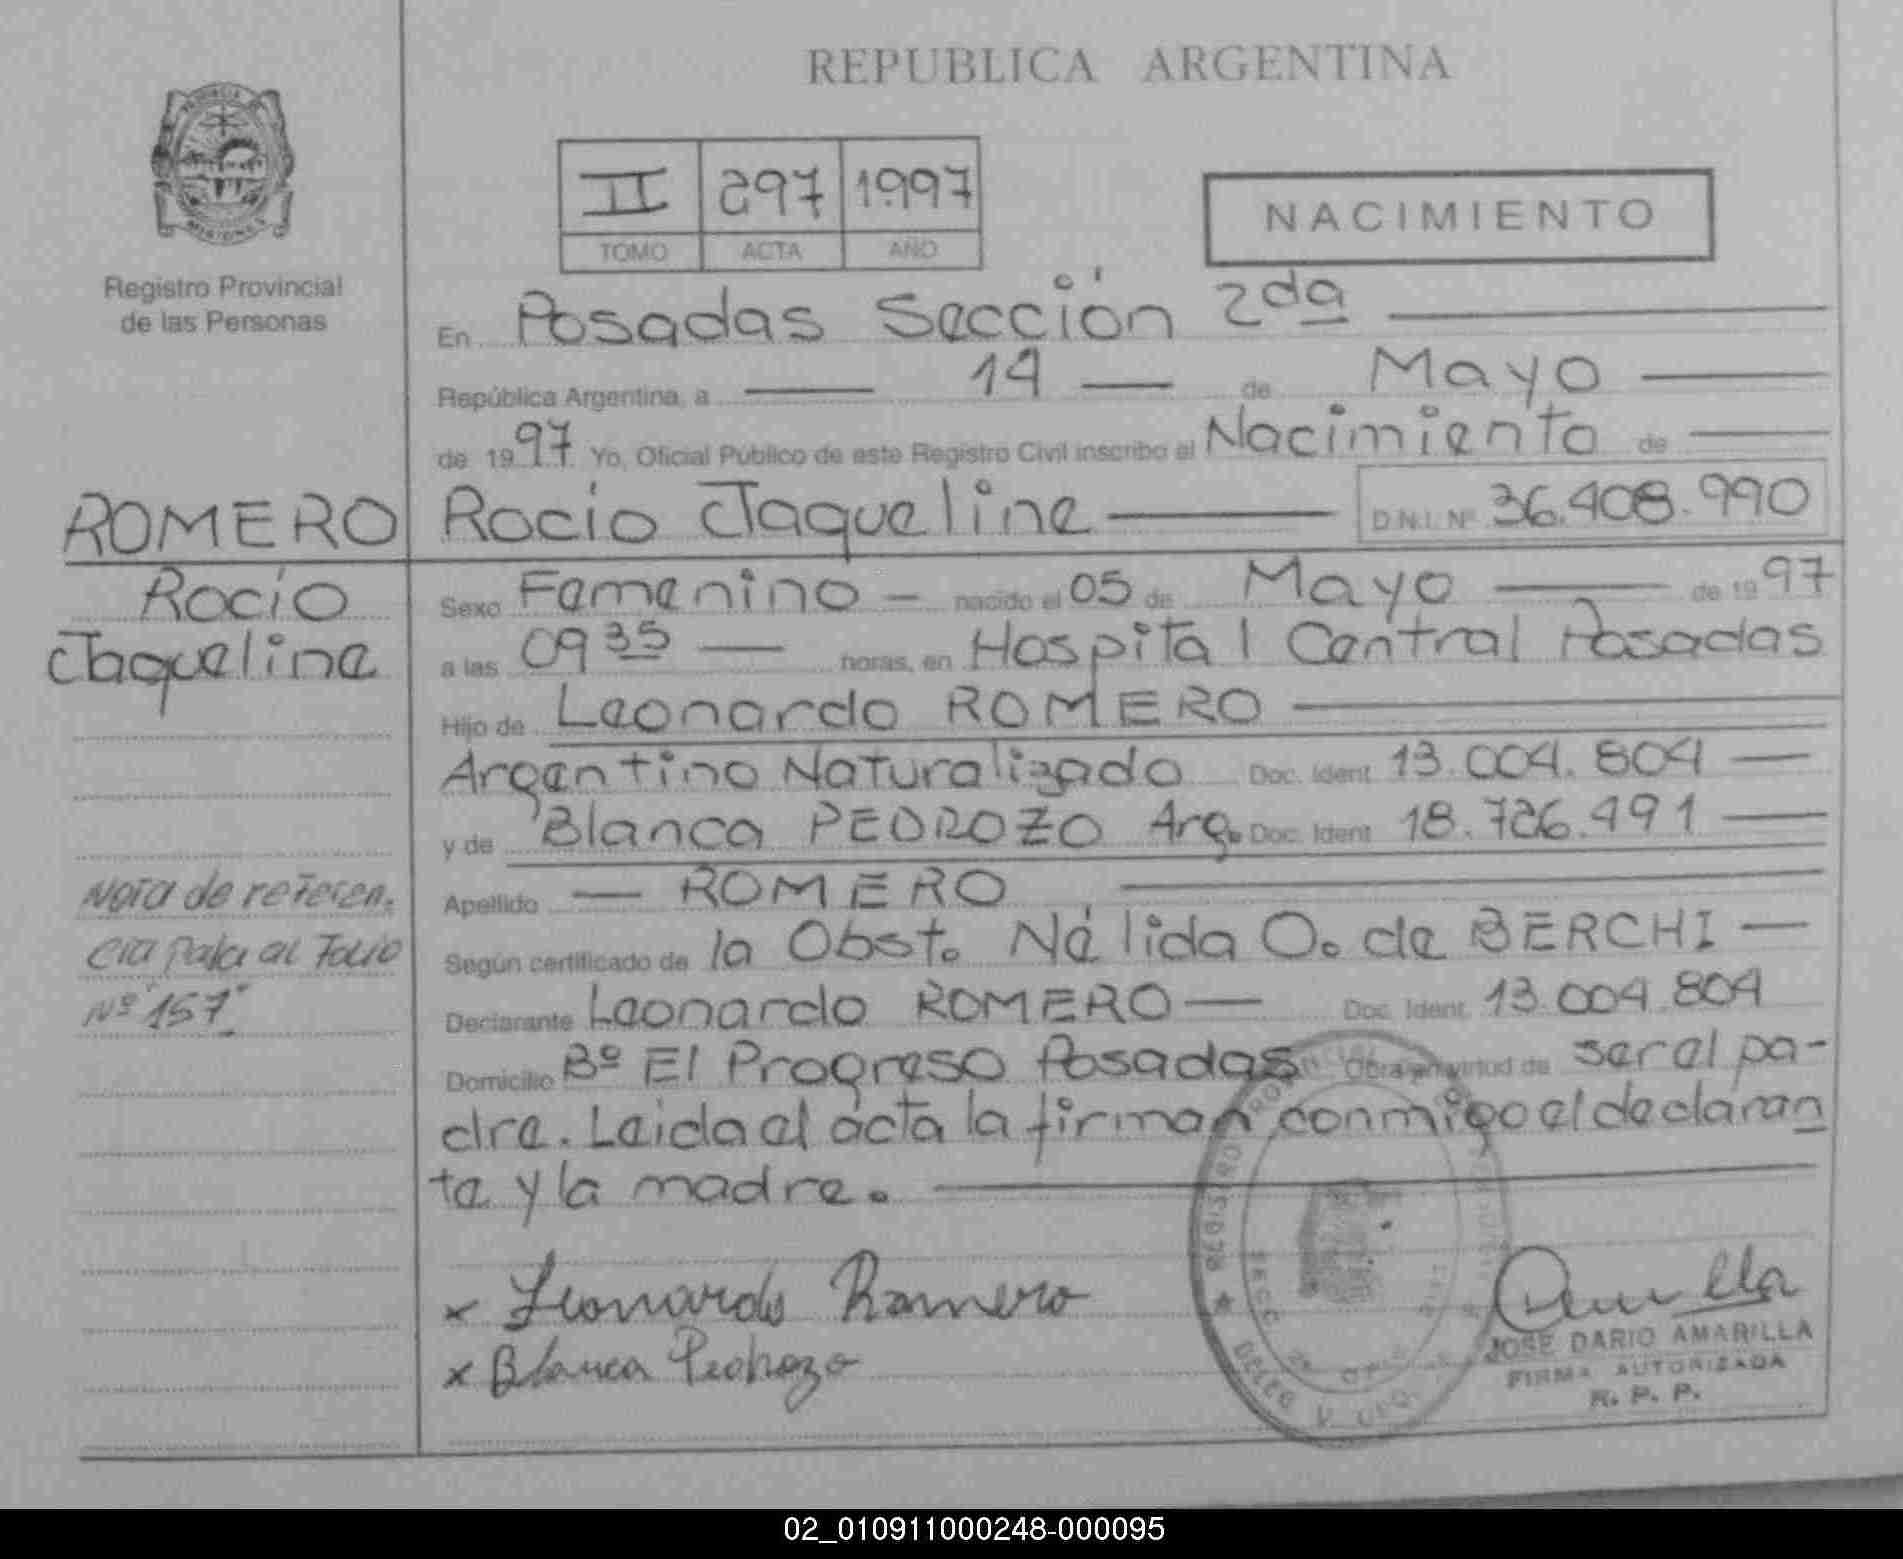 REPUBLICA ARGENTINA
II 297 1.997
TOMO ACTA AÑO
NACIMIENTO
Registro Provincial
de las Personas
En Posadas Sección 2da
República Argentina, a 14 de Mayo
de 1997 Yo, Oficial Público de este Registro Civil inscribo el Nacimiento de
ROMERO Rocio Jaqueline D.N.I. Nº 36.408.990
Rocio
Jaqueline
Sexo Femenino - nacido el 05 de Mayo de 1997
a las 09 35 horas, en Hospital Central Posadas
Hijo de Leonardo ROMERO
Argentino Naturalizado Doc. Ident. 13.004.804
y de Blanca PEDROZO Arg. Doc. Ident. 18.726.491
Apellido ROMERO
Según certificado de la Obst. Nélida O. de BERCHI
Declarante Leonardo ROMERO Doc. Ident. 13.004.804
Domicilio Bº El Progreso Posadas Obra en virtud de ser el pa-
dre. Leida el acta la firman conmigo el declaran
te y la madre.
Nota de referen.
cia pasa al Folio
Nº 157
x Leonardo Romero
x Blanca Pedrozo
JOSE DARIO AMARILLA
FIRMA AUTORIZADA
R. P. P.
02_010911000248-000095